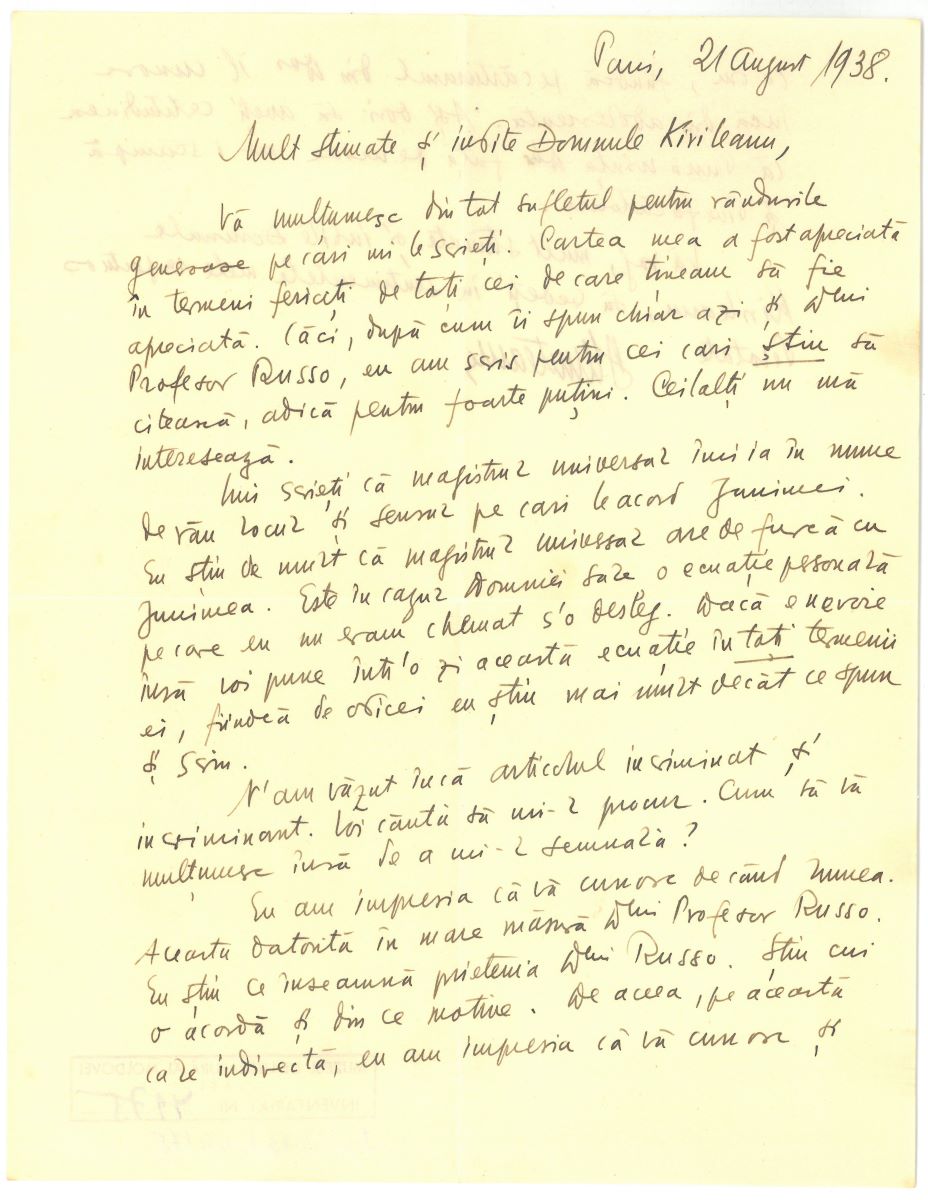 Paris, 21 August 1938.
Mult stimate și iubite Domnule Kirileanu,
Vă mulțumesc din tot sufletul pentru rândurile
generoase pe cari mi le scrieți. Cartea mea a fost apreciată
în termeni fericiți de toți cei de care țineam să fie
apreciată. Căci, după cum îi spun chiar azi și Dlui
Profesor Russo, eu am scris pentru cei cari știu să
citească, adică pentru foarte puțini. Ceilalți nu mă
interesează.
Îmi scrieți că magistrul universal îmi ia în nume
de rău locul și sensul pe cari le acord Junimei.
Eu știu de mult că magistrul universal are de furcă cu
Junimea. Este în cazul Domniei sale o ecuație personală
pe care eu nu eram chemat s'o desleg. Dacă e nevoie
însă voi pune într'o zi această ecuație în toți termenii
ei, fiindcă de obicei eu știu mai mult decât ce spun
și scriu.
N'am văzut încă articolul incriminat și
incriminant. Voi căuta să mi-l procur. Cum să vă
mulțumesc însă de a mi-l semnala?
Eu am impresia că vă cunosc de când lumea.
Aceasta datorită în mare măsură Dlui Profesor Russo.
Eu știu ce înseamnă prietenia Dlui Russo. Știu cui
o acordă și din ce motive. De aceea, pe această
cale indirectă, eu am impresia că vă cunosc și